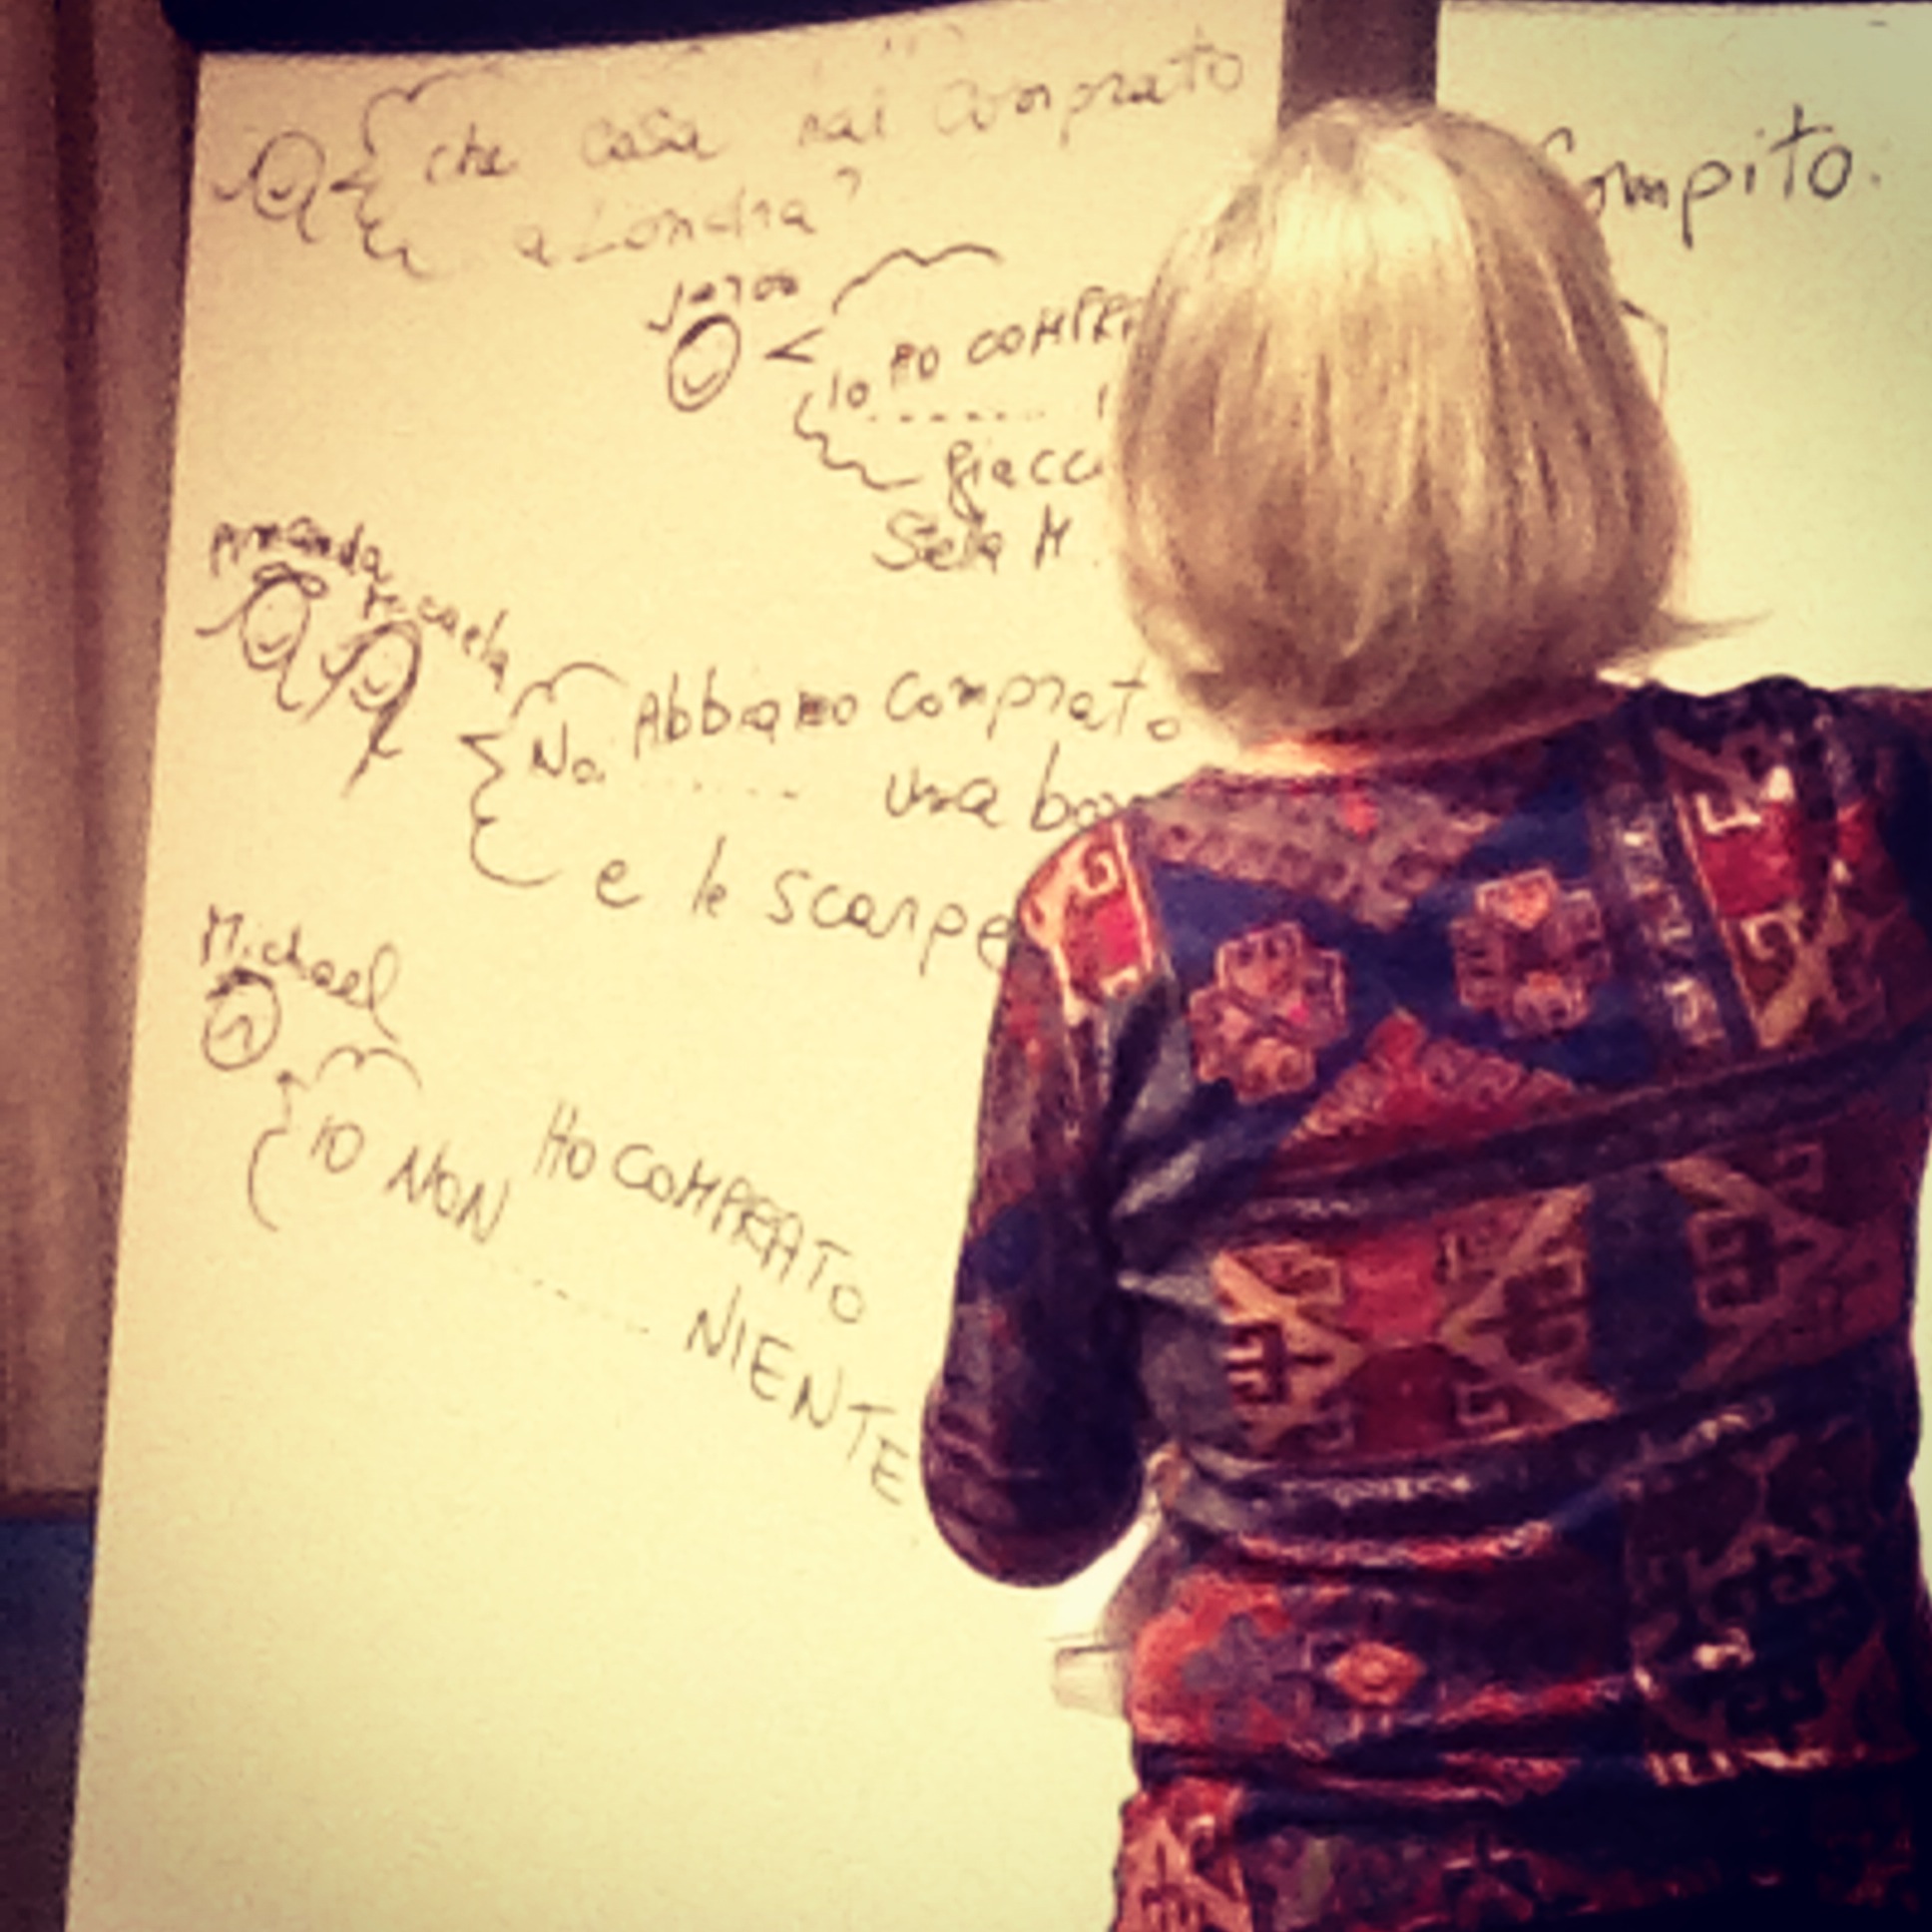 che cosa hai comprato
a Londra?
IO HO COMPRA
giacca
Stella M.
Amanda
Michaela
No. Abbiamo comprato
una bor
e le scarpe
Michael
IO NON HO COMPRATO
NIENTE
Compito.